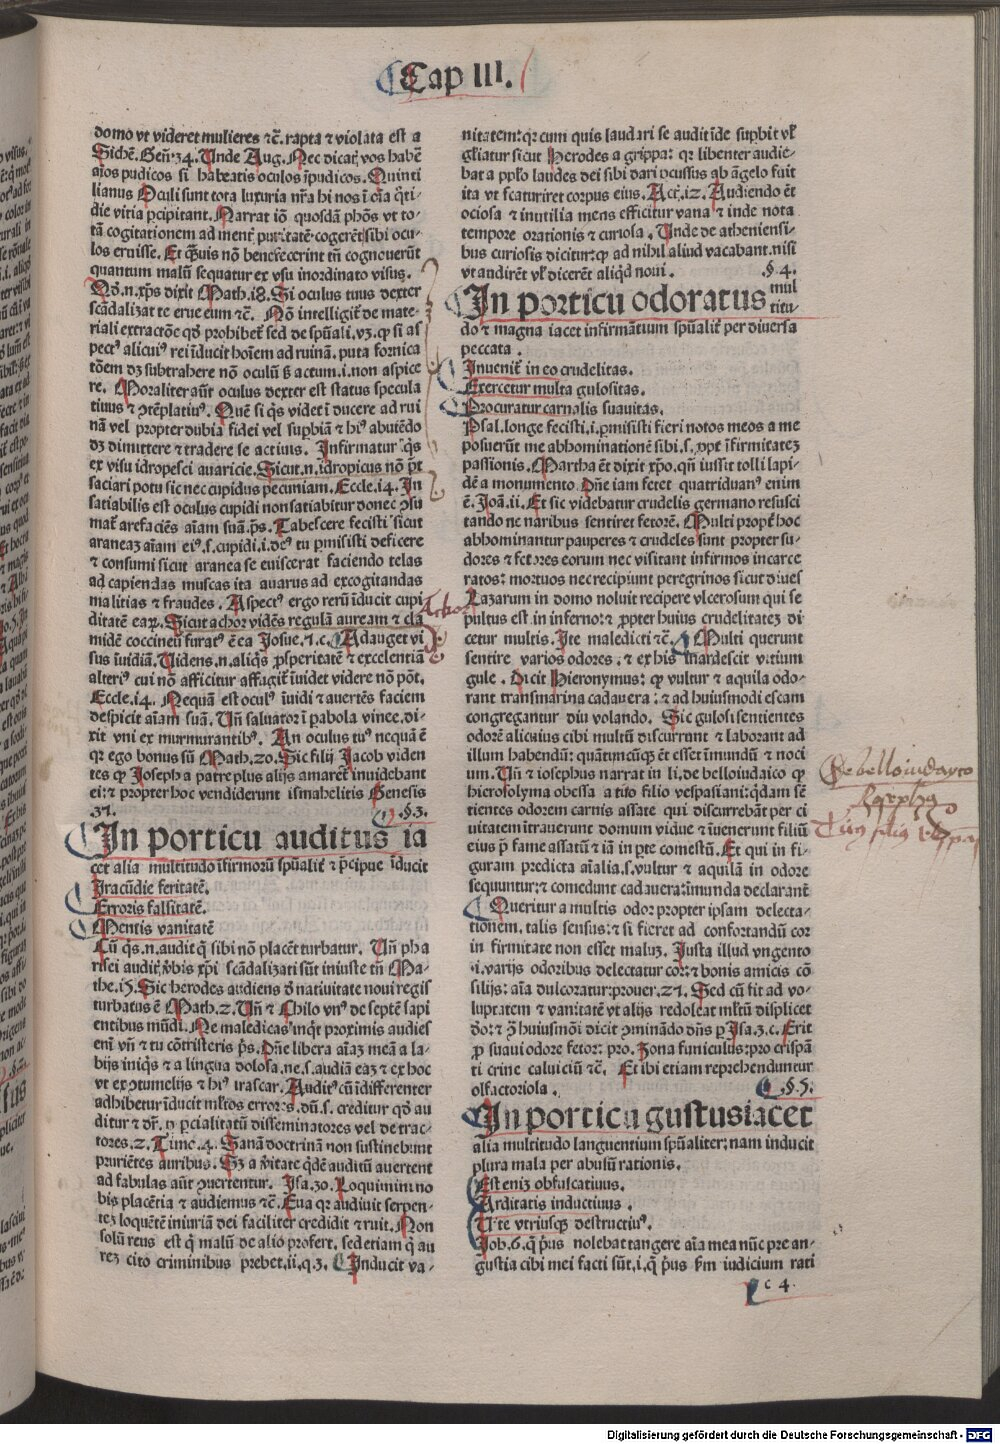 Cap III.
domo vt videret mulieres ⁊c̄. rapta ⁊ violata est a
Sichē. Gen̄. 34. Unde Aug. Nec dicat̉ vos habē
aīos pudicos si habeatis oculos īpudicos. Quinti
lianus Oculi sunt tota luxuria nr̄a hi nos ī oīa q̄ti-
die vitia p̄cipitant. Narrat iō quosdā ph̄os vt to-
tā cogitationem ad mentꝭ puritatē cogerēt sibi ocu-
los eruisse. Et q̄uis nō benefecerint tn̄ cognouerūt
quantum malū sequatur ex vsu inordinato visus.
Qd̓ .n. xp̄s dixit Math. 18. Si oculus tuus dexter
scādalizat te erue eum ⁊c̄. Nō intelligit̉ de mate-
riali extractōe qd̓ prohibet̉ sed de sp̄uali. vꝫ. ꝙ si as
pectꝰ alicuiꝰ rei īducit hoīem ad ruinā. puta fornica
tōem dꝫ subtrahere nō oculū ß actum .i. non aspice
re. Moraliter aūt oculus dexter est status specula
tiuus ⁊ ꝯtēplatiuꝰ. Quē si q̄s videt ī ducere ad rui
nā vel propter dubia fidei vel suꝑbiā ⁊ hꝰ abutēdo
dꝫ dimittere ⁊ tradere se actiuis. Infirmatur q̄s
ex visu idropesci auaricie. Sicut .n. idropicus nō pt̄
saciari potu sic nec cupidus pecuniam. Eccle. 14. In
satiabilis est oculus cupidi non satiabitur donec ꝯsu
mat̉ arefaciēs aīam suā. ps̄. Tabescere fecisti sicut
araneaꝫ aīam eiꝰ .s. cupidi .i. deꝰ tu ꝑmisisti deficere
⁊ consumi sicut aranea se euiscerat faciendo telas
ad capiendas muscas ita auarus ad excogitandas
malitias ⁊ fraudes. Aspectꝰ ergo rerū īducit cupi
ditatē eaꝝ. Sicut achor vidēs regulā auream ⁊ cla
midē coccineū furatꝰ ē ea Josue. 7. c. Adauget vi
sus īuidiā. Uidens .n. aliq̄s ꝓsperitatē ⁊ excelentiā
alteriꝰ cui nō afficitur affugit̉ īuidet videre nō pōt.
Eccle. 14. Nequā est oculꝰ īuidi ⁊ auertēs faciem
despicit aīam suā. Un̄ saluator ī ꝑabola vinee. di-
xit vni ex murmurantibꝰ. An oculus tuꝰ nequā ē
qr ego bonus sū Math. 20. Sic filij Jacob viden
tes ꝙ Joseph a patre plus alijs amaret̉ inuidebant
ei: ⁊ propter hoc vendiderunt ismahelitis Genesis
37. .§ 3.
In porticu auditus ia
cet alia multitudo īfirmorū sp̄ualit̉ ⁊ p̄cipue īducit
Iracūdie feritatē.
Erroris falsitatē.
Mentis vanitatē
Cū q̄s .n. audit q̄ sibi nō placēt turbatur. Un̄ pha
risei auditꝭ v̓bis xp̄i scādalizati sūt iniuste tn̄ Ma-
the. 15. Sic herodes audiens d̓ natiuitate noui regis
turbatus ē Math. 2. Un̄ ⁊ Chilo vnꝰ de septē sapi
entibus mūdi. Ne maledicas inq̄t proximis audies
eni vn̄ ⁊ tu cōtristeris ps̄. Dn̄e libera aīaꝫ meā a la-
bijs iniq̄s ⁊ a lingua dolosa .ne .s. audiā eaꝫ ⁊ ex hoc
vt ex ꝯtumelijs ⁊ hꝰ irascar. Auditꝰ cū īdifferenter
adhibetur īducit ml̓tos errores. dū .s. creditur qd̓ au
ditur ⁊ dr̄. ꝑ ꝑcialitatū disseminatores vel detrac-
tores. 2. Timo. 4. Sanā doctrinā non sustinebunt
pruriētes auribus. Sꝫ a v̓itate q̄dē auditū auertent
ad fabulas aūt ꝯuertentur. Isa. 30. Loquimini no
bis placētia ⁊ audiemus ⁊c̄. Eua qr audiuit serpen-
teꝫ loquētē iniuriā dei faciliter credidit ⁊ ruit. Non
solū reus est q̄ malū de alio profert. sed etiam q̄ au
reꝫ cito criminibus prebet. ii. q. 3. Inducit va-
nitatem: qr cum quis laudari se audit īde suꝑbit vl̓
gl̓iatur sicut Herodes a grippa: qr libenter audie-
bat a pplo laudes dei sibi dari ꝑcussus ab āgelo fuit
ita vt scaturiret corpus eius. Act̓. 12. Audiendo ēt
ociosa ⁊ inutilia mens efficitur vana ⁊ inde nota
tempore orationis ⁊ curiosa. Unde de atheniensi-
bus curiosis dicitur: ꝙ ad nihil aliud vacabant. nisi
vt audirēt vl̓ dicerēt aliqd noui. .§ 4.
In porticu odoratus mul
titu-
do ⁊ magna iacet infirmātium sp̄ualit̉ per diuersa
peccata.
Inuenit̉ in eo crudelitas.
Exercetur multa gulositas.
Procuratur carnalis suauitas.
Psal. longe fecisti .i. ꝑmisisti fieri notos meos a me
posuerūt me abhominationē sibi .s. ꝓpt̉ īfirmitateꝫ
passionis. Martha ēt dixit xp̄o. qn̄ iussit tolli lapi-
dē a monumento. Dn̄e iam fetet quatriduanꝰ enim
ē. Joā. ii. Et sic videbatur crudelis germano resusci
tando ne naribus sentiret fetorē. Multi propt̉ hoc
abbominantur pauperes ⁊ crudeles sunt propter su-
dores ⁊ fetores eorum nec visitant infirmos incarce
ratos: mortuos nec recipiunt peregrinos sicut diues
Lazarum in domo noluit recipere vlcerosum qui se
pultus est in inferno: ⁊ ꝓpter huius crudelitateꝫ di
cetur multis. Ite maledicti ⁊c̄. Multi querunt
sentire varios odores. ⁊ ex his inardescit vitium
gule. Dicit Hieronymus: ꝙ vultur ⁊ aquila odo-
rant transmarina cadauera: ⁊ ad huiusmodi escam
congregantur diu volando. Sic gulosi sentientes
odorē alicuius cibi multū discurrunt ⁊ laborant ad
illum habendū: quātumcūqꝫ ēt esset īmundū ⁊ noci
uum. Un̄ ⁊ iosephus narrat in li. de bello iudaico ꝙ
hierosolyma obessa a tito filio vespasiani: q̄dam sē
tientes odorem carnis assate qui discurrebāt per ci
uitatem ītrauerunt domum vidue ⁊ īuenerunt filiū
eius p̄ fame assatū ⁊ iā in pte comestū. Et qui in fi-
guram predicta aīalia .s. vultur ⁊ aquila in odore
sequuntur: ⁊ comedunt cadauera: īmunda declarant
Queritur a multis odor propter ipsam delecta-
tionem. talis sensus: ⁊ si fieret ad confortandū cor
in firmitate non esset maluꝫ. Justa illud vngento
.i. varijs odoribus delectatur cor: ⁊ bonis amicis cō
silijs: aīa dulcoratur: prouer. 27. Sed cū fit ad vo-
luptatem ⁊ vanitatē vt alijs redoleat ml̓tū displicet
deo: ⁊ ꝯ huiusmōi dicit ꝯminādo dn̄s ꝑ Isa. 3. c. Erit
ꝓ suaui odore fetor: pro. Zona funiculus: pro crispā
ti crine caluiciū ⁊c̄. Et ibi etiam reprehenduntur
olfactoriola. .§ 5.
In porticu gustus iacet
alia multitudo languentium sp̄ualiter: nam inducit
plura mala per abusū rationis.
Est eniꝫ obfuscatiuus.
Arditatis inductiuus.
Uite vtriusqꝫ destructiuꝰ.
Job. 6. q̄ pus nolebat tangere aīa mea nūc pre an-
gustia cibi mei facti sūt .i. q̄ pus ẜm iudicium rati
c 4
De bello iudayco